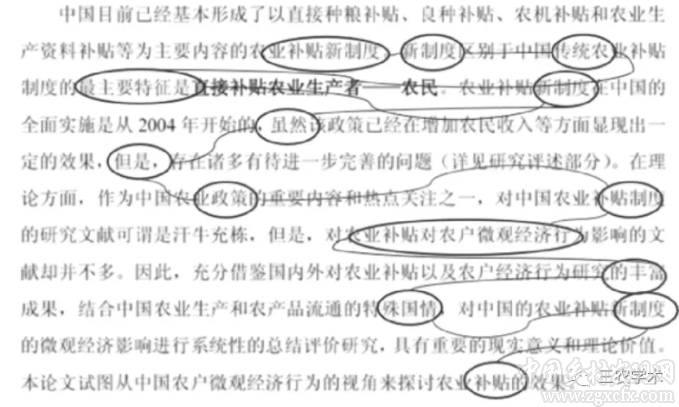 中国目前已经基本形成了以直接种粮补贴、良种补贴、农机补贴和农业生
产资料补贴等为主要内容的农业补贴新制度，新制度区别于中国传统农业补贴
制度的最主要特征是直接补贴农业生产者——农民。农业补贴新制度在中国的
全面实施是从 2004 年开始的，虽然该政策已经在增加农民收入等方面显现出一
定的效果，但是，存在诸多有待进一步完善的问题（详见研究评述部分）。在理
论方面，作为中国农业政策的重要内容和热点关注之一，对中国农业补贴制度
的研究文献可谓是汗牛充栋，但是，对农业补贴对农户微观经济行为影响的文
献却并不多。因此，充分借鉴国内外对农业补贴以及农户经济行为研究的丰富
成果，结合中国农业生产和农产品流通的特殊国情，对中国的农业补贴新制度
的微观经济影响进行系统性的总结评价研究，具有重要的现实意义和理论价值。
本论文试图从中国农户微观经济行为的视角来探讨农业补贴的效果。
三农学术
中国乡村发现
www.zgxcfx.com